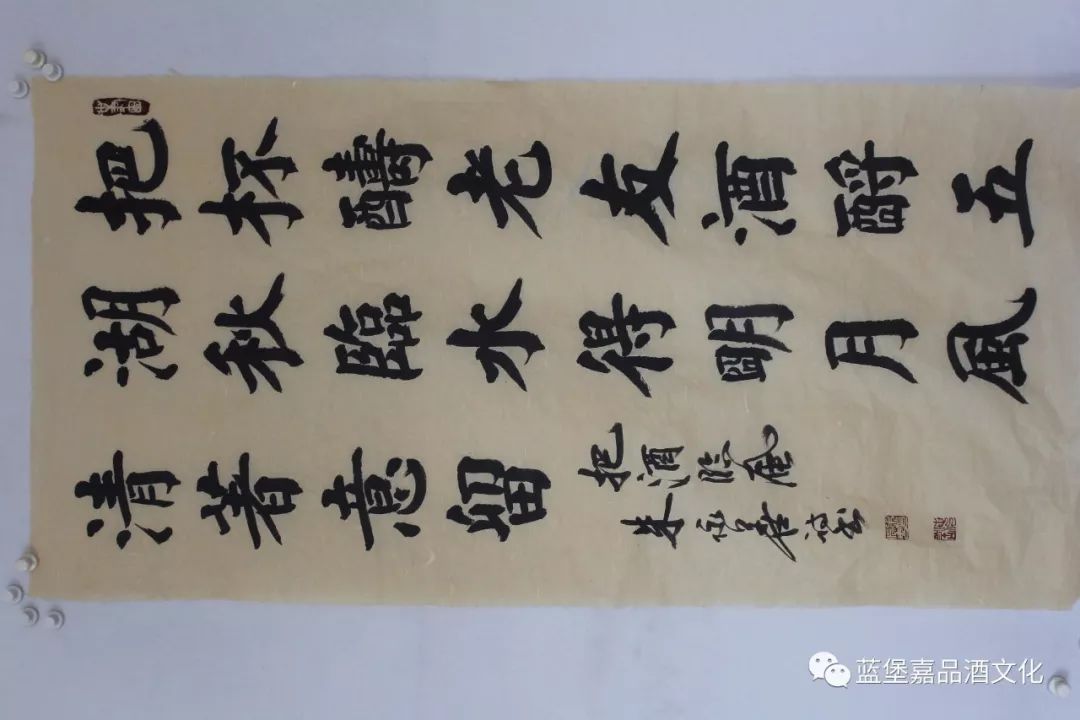 把杯醻老友酒酹五
湖秋臨水得明月風
清著意留
把酒臨風
蓝堡嘉品酒文化